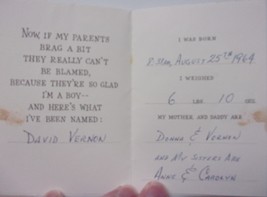 NOW IF MY PARENTS
BRAG A BIT
THEY REALLY CAN'T
BE BLAMED,
BECAUSE THEY'RE SO GLAD
I'M A BOY—
AND HERE'S WHAT
I'VE BEEN NAMED:
DAVID VERNON
I WAS BORN
AUGUST 25TH 1964
I WEIGHED
6 LBS 10 OZS.
MY MOTHER AND DADDY ARE
DONNA & VERNON
AND MY SISTERS ARE
ANNE & CAROLYN